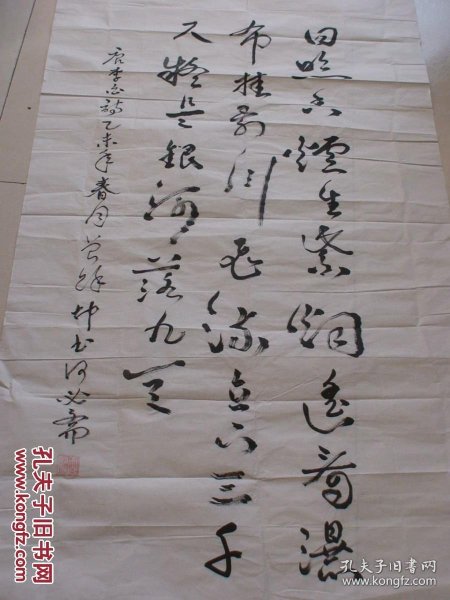 日照香爐生紫烟遥看瀑
布挂前川飛流直下三千
尺疑是銀河落九天
唐李白詩乙未年春月坤书何必斋
孔夫子旧书网
孔夫子旧书网
www.kongfz.com